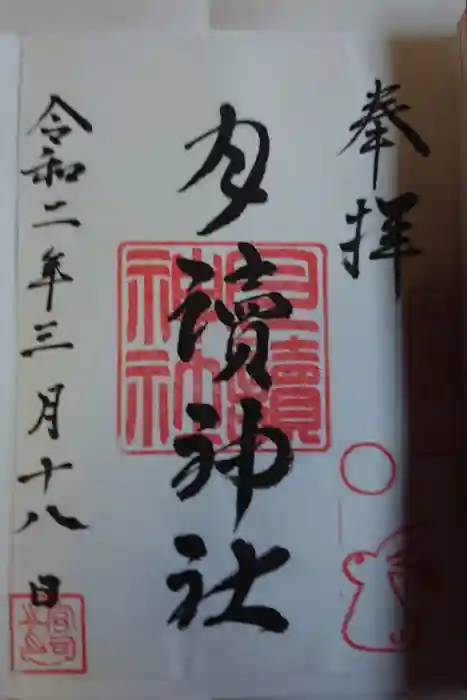 奉拝
月讀神社
月讀神社
令和二年三月十八日